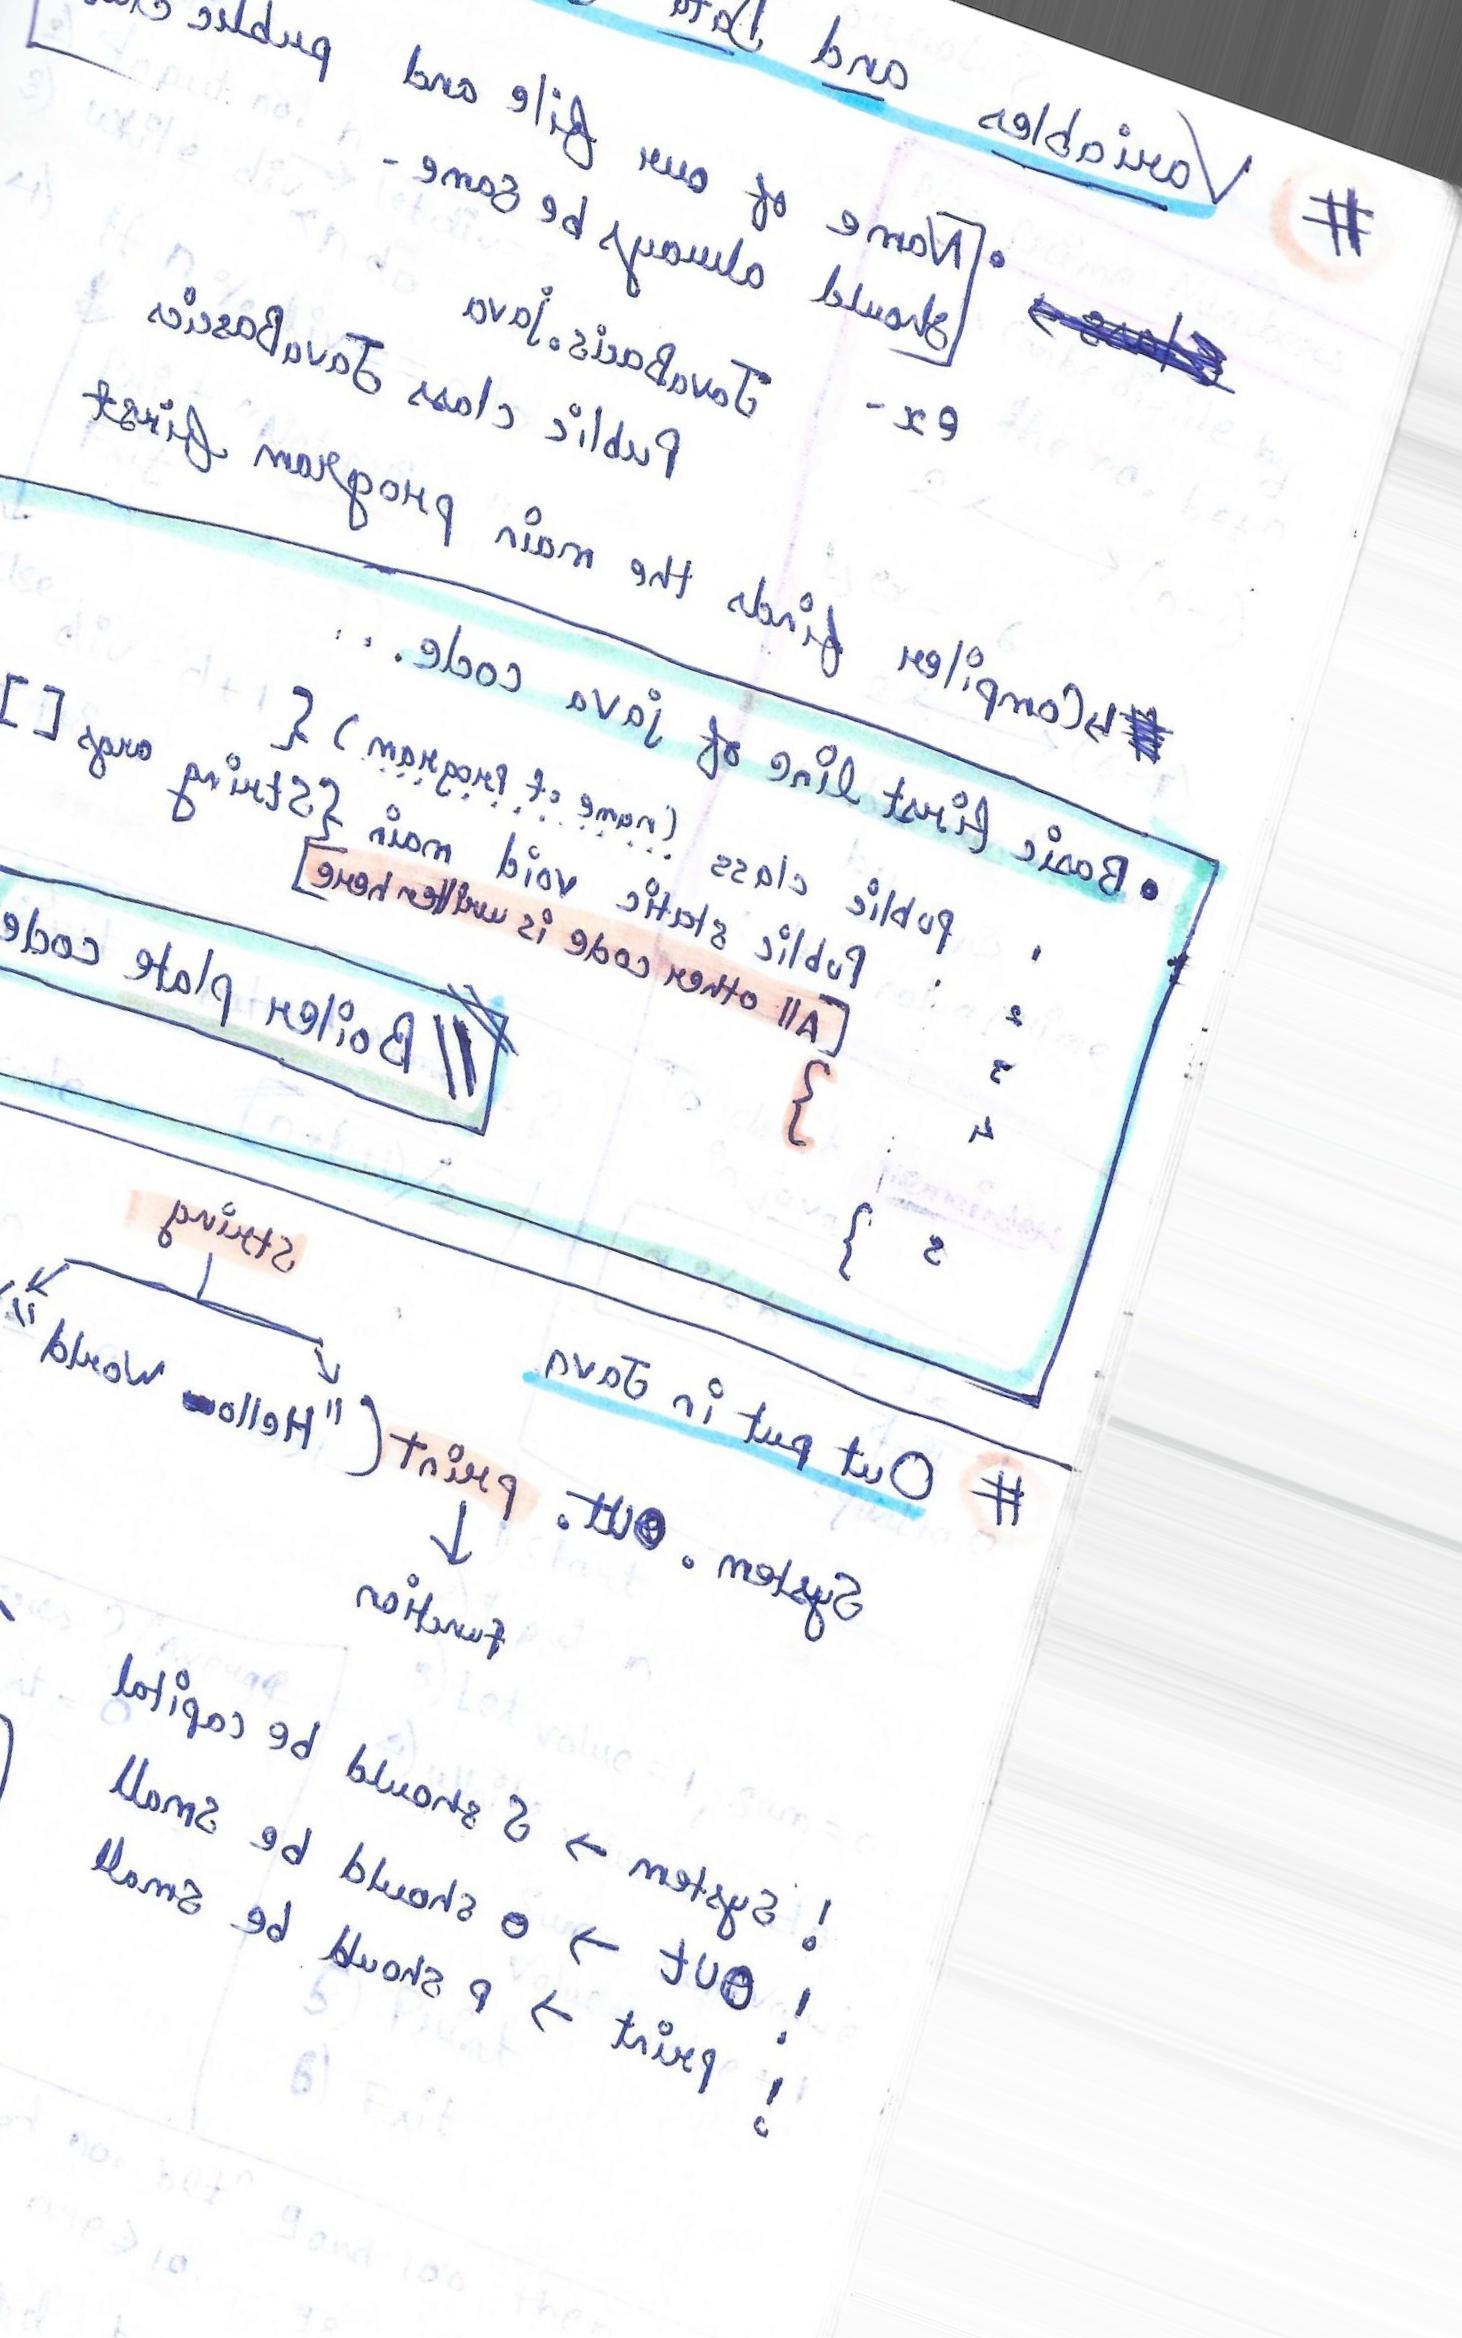 # Variables and Data
• [Name of our file and public
should always be same -
ex - JavaBacis.java
Public class JavaBascics
↳ Compiler finds the main program first
• Basic first line of java code. . .
1 public class (name of program) {
2 Public static void main {String args []
3 [All other code is written here]
4 }
5 }
// Boiler plate code
# Out put in Java
String
System . out. print ("Hello World"
↓
function
! System → S should be capital
! out → o should be small
! print → p should be small